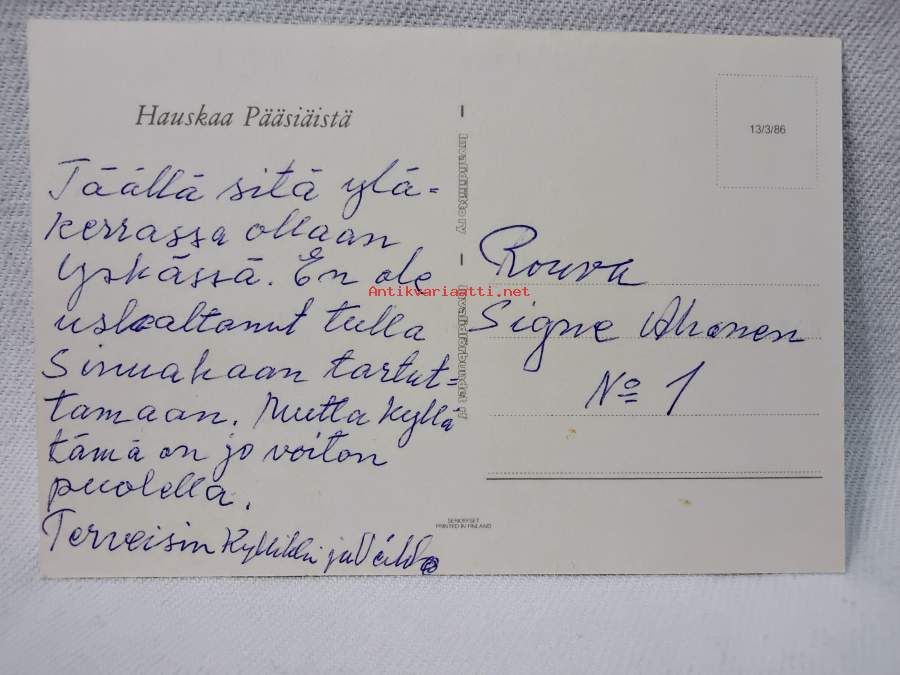 Hauskaa Pääsiäistä
Täällä sitä ylä-
kerrassa ollaan
yskässä. En ole
uskaltanut tulla
Sinuakaan tartut=
tamaan. Mutta kyllä
tämä on jo voiton
puolella.
Terveisin Kyllikki ja Veikko
13/3/86
Rouva
Signe Ahonen
No 1
Antikvariaatti.net
SENIORYSET
PRINTED IN FINLAND